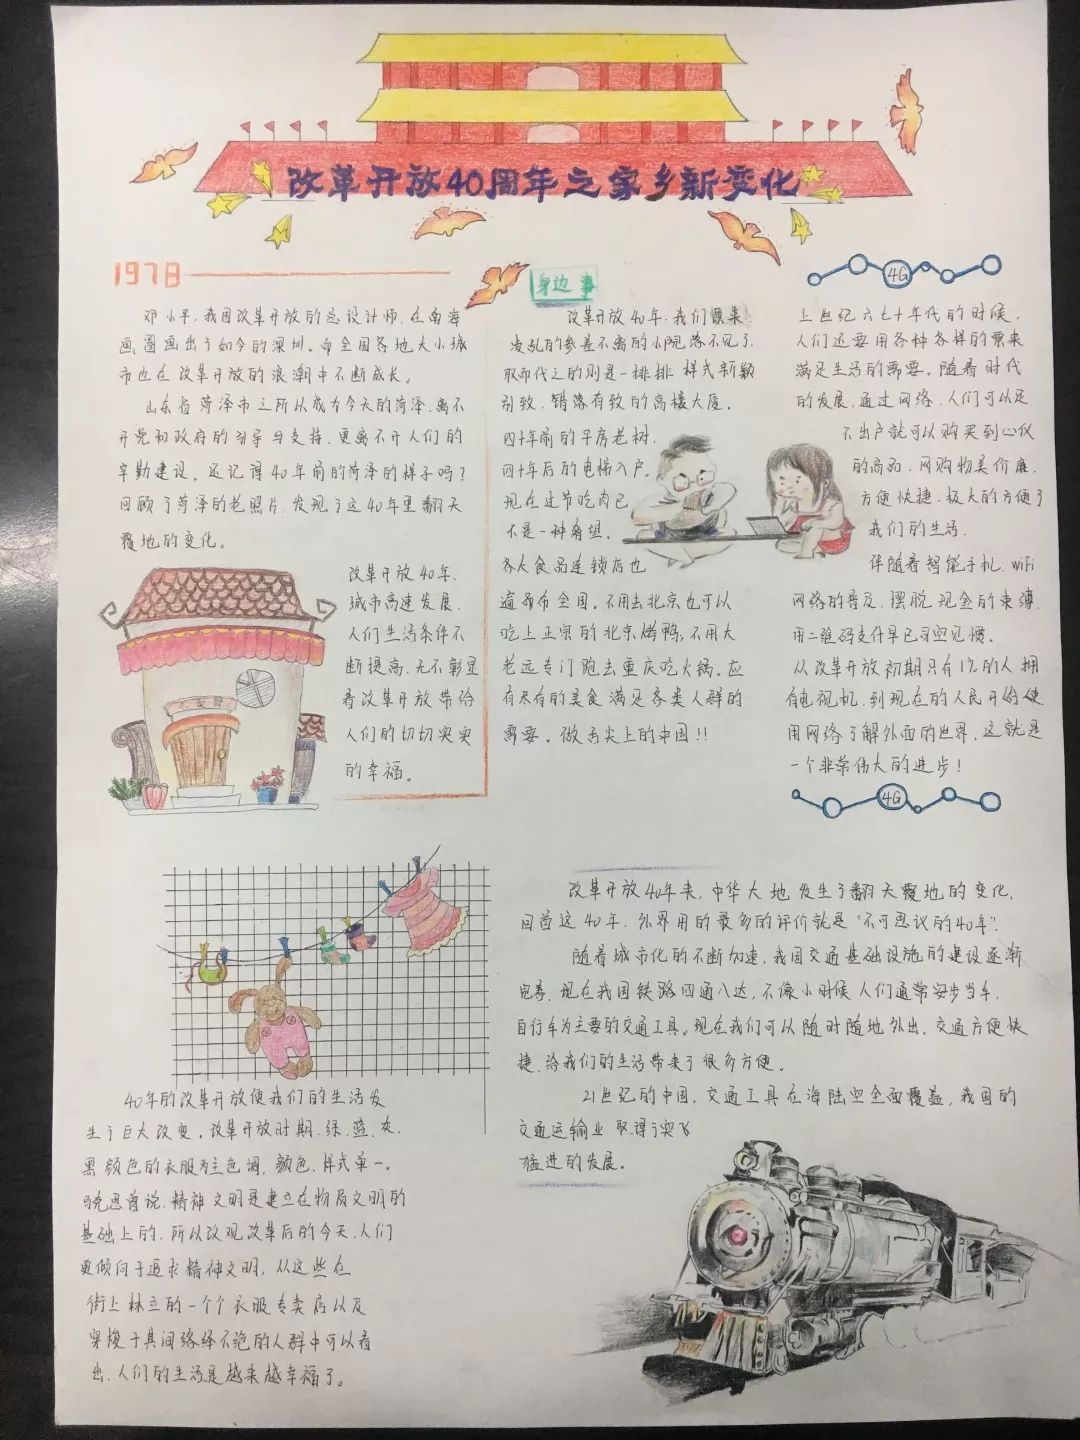 改革开放40周年之家乡新变化
1978
邓小平，我国改革开放的总设计师，在南海
画圈画出了如今的深圳。而全国各地大小城
市也在改革开放的浪潮中不断成长。
山东省菏泽市之所以成为今天的菏泽，离不
开党和政府的引导与支持，更离不开人们的
辛勤建设。还记得40年前的菏泽的样子吗？
回顾了菏泽的老照片，发现了这40年里翻天
覆地的变化。
改革开放40年，
城市高速发展，
人们生活条件不
断提高，无不彰显
着改革开放带给
人们的切切实实
的幸福。
身边事
改革开放40年，我们原来
凌乱的参差不离的小院落不见了，
取而代之的则是一排排样式新颖
别致，错落有致的高楼大厦。
四十年前的平房老树，
四十年后的电梯入户。
现在过节吃肉已
不是一种奢望。
各大食品连锁店也
遍布全国。不用去北京也可以
吃上正宗的北京烤鸭，不用大
老远专门跑去重庆吃火锅。应
有尽有的美食满足各类人群的
需要。做舌尖上的中国！！
4G
上世纪六七十年代的时候，
人们还要用各种各样的票来
满足生活的需要。随着时代
的发展，通过网络，人们可以足
不出户就可以购买到心仪
的商品，网购物美价廉，
方便快捷，极大的方便了
我们的生活。
伴随着智能手机，WiFi
网络的普及，摆脱现金的束缚，
用二维码支付早已司空见惯。
从改革开放初期只有1%的人拥
有电视机，到现在的人民开始使
用网络了解外面的世界，这就是
一个非常伟大的进步！
4G
40年的改革开放使我们的生活发
生了巨大改变。改革开放时期，绿，蓝，灰，
黑颜色的衣服为主色调，颜色，样式单一。
马克思曾说，精神文明是建立在物质文明的
基础上的，所以改观改革后的今天，人们
更倾向于追求精神文明，从这些在
街上林立的一个个衣服专卖店以及
穿梭于其间络绎不绝的人群中可以看
出，人们的生活是越来越幸福了。
改革开放40年来，中华大地发生了翻天覆地的变化，
回首这40年，外界用的最多的评价就是“不可思议的40年”。
随着城市化的不断加速，我国交通基础设施的建设逐渐
完善，现在我国铁路四通八达，不像小时候人们通常安步当车，
自行车为主要的交通工具。现在我们可以随时随地外出，交通方便快
捷，给我们的生活带来了很多方便。
21世纪的中国，交通工具在海陆空全面覆盖，我国的
交通运输业取得了突飞
猛进的发展。